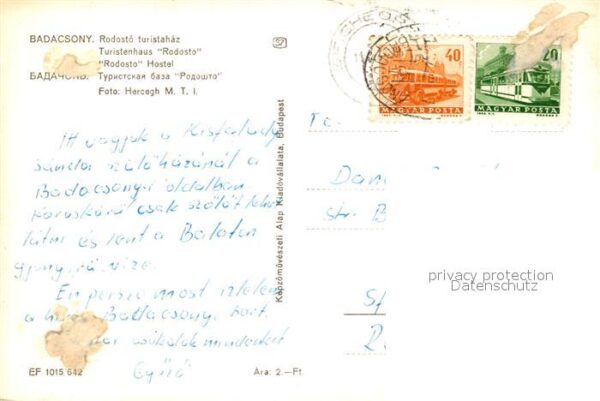 BADACSONY. Rodostó turistaház
Turistenhaus "Rodosto"
"Rodosto" Hostel
БАДАЧОНЬ. Туристская база "Родошто"
Foto: Hercegh M. T. I.
Itt vagyunk a Kisfaludy
Sándor szőlőházánál a
Badacsonyi oldalban
Körüskörül csak szőlőt lehet
látni és lent a Balaton
gyönyörű vize.
Én persze most ízlelem
a híres Badacsonyi bort.
csókolok mindenkit
Győző
EF 1015 642
Ára: 2.—Ft.
Képzőművészeti Alap Kiadóvállalata, Budapest
40
MAGYAR POSTA
20
MAGYAR POSTA
Dan
str. B
privacy protection
Datenschutz